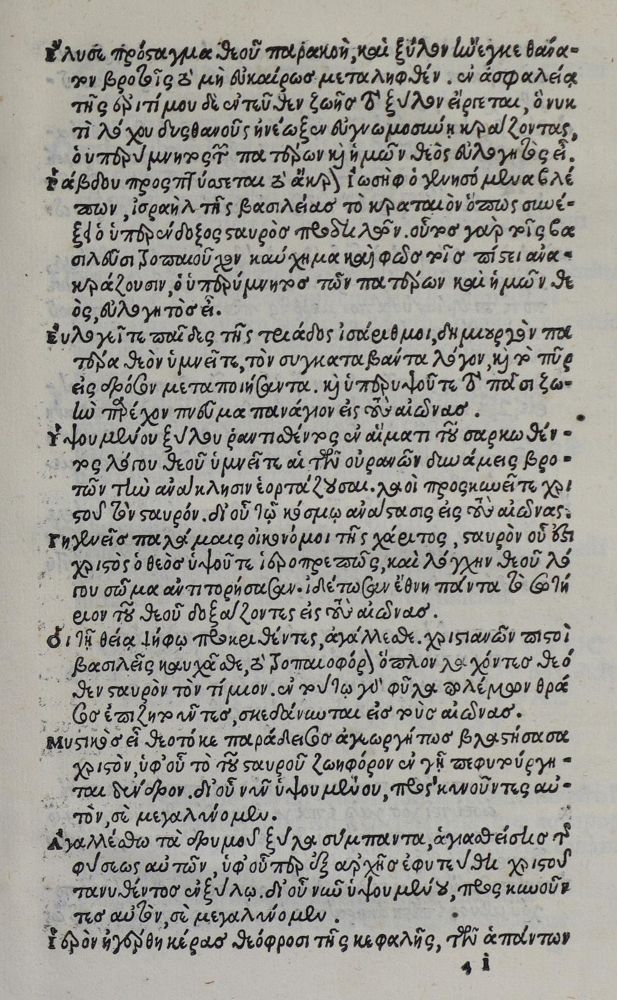 Ἔλυσε πρόσταγμα θεοῦ παρακοὴ, καὶ ξύλον ἤνεγκε θάνα-
τον βροτοῖς τὸ μὴ εὐκαίρως μεταληφθέν. ἐν ἀσφαλείᾳ
τῆς ἐριτίμου δὲ ἐντεῦθεν ζωῆσ τὸ ξύλον εἴργεται, ὃ νυκ
τιλόχου δυσθανοῦς ἠνέωξεν εὐγνωμοσύνη κράζοντας,
ὁ ὑπερύμνητος τῶν πατέρων κὶ ἡμῶν θεὸς εὐλογητὸς εἶ.
Ῥάβδου προσπτύσσεται τὸ ἄκρον Ἰωσὴφ ὁ γενησόμενα βλέ
πων, ἰσραὴλ τῆς βασιλείασ τὸ κραταιὸν ὅπως συνέ-
ξει ὁ ὑπερένδοξος σταυρὸσ προδηλῶν. οὗτοσ γὰρ τοῖς βα
σιλεῦσι τροπαιοῦχον καύχημα καὶ φῶσ τοῖσ πίστει ἀνα-
κράζουσιν, ὁ ὑπερύμνητοσ τῶν πατέρων καὶ ἡμῶν θε
ὸς, εὐλογητὸσ εἶ.
Εὐλογεῖτε παῖδες τῆς τριάδος ἰσάριθμοι, δημιουργὸν πα
τέρα θεὸν ὑμνεῖτε, τὸν συγκαταβάντα λόγον, κὶ τὸ πῦρ
εἰς δρόσον μεταποιήσαντα. κὶ ὑπερυψοῦτε τὸ πᾶσι ζω-
ὴν παρέχον πνεῦμα πανάγιον εἰς τοὺσ αἰῶνασ.
Ὑψουμένου ξύλου ῥαντισθέντοσ ἐν αἵματι τοῦ σαρκωθέν-
τος λόγου θεοῦ ὑμνεῖτε αἱ τῶν οὐρανῶν δυνάμεις βρο-
τῶν τὴν ἀνάκλησιν ἑορτάζουσαι. λαοὶ προσκυνεῖτε χρι
στοῦ τὸν σταυρόν. δι' οὗ τῷ κόσμῳ ἀνάστασις εἰς τοὺσ αἰῶνας.
Γηγενεῖσ παλάμαις οἰκονόμοι τῆς χάριτος, σταυρὸν οὗ ἔστη
χριστὸς ὁ θεὸσ ὑψοῦτε ἱεροπρεπῶς, καὶ λόγχην θεοῦ λό
γου σῶμα ἀντιτορήσασαν. ἰδέτωσαν ἔθνη πάντα τὸ σωτή
ριον τοῦ θεοῦ δοξάζοντες εἰς τοὺσ αἰῶνασ.
Οἱ τῇ θείᾳ ψήφῳ προκριθέντες, ἀγάλλεσθε. χριστιανῶν πιστοὶ
βασιλεῖς καυχᾶσθε, τὸ τροπαιοφόρον ὅπλον λαχόντεσ θεό
θεν σταυρὸν τὸν τίμιον. ἐν τούτῳ γὰρ φῦλα πολέμων θρά
σοσ ἐπιζητοῦντεσ, σκεδάννυται εἰσ τοὺσ αἰῶνασ.
Μυστικὸς εἶ θεοτόκε παράδεισος ἀγεωργήτως βλαστήσασα
χριστὸν, ὑφ' οὗ τὸ τοῦ σταυροῦ ζωηφόρον ἐν γῇ πεφυτούργη-
ται δένδρον. δι' οὗ νῦν ὑψουμένου, προσκυνοῦντες αὐ-
τὸν, σὲ μεγαλύνομεν.
Ἀγαλλέσθω τὰ δρυμοῦ ξύλα σύμπαντα, ἁγιασθείσησ τῆσ
φύσεως αὐτῶν, ὑφ' οὗπερ ἐξ ἀρχῆσ ἐφυτεύθη χριστοῦ
τανυθέντοσ ἐν ξύλῳ. δι' οὗ νῦν ὑψουμένου, προσκυνοῦν
τεσ αὐτὸν, σὲ μεγαλύνομεν.
Ἱερὸν ἠγέρθη κέρασ θεόφροσι τῆς κεφαλῆς, τῶν ἁπάντων
ι